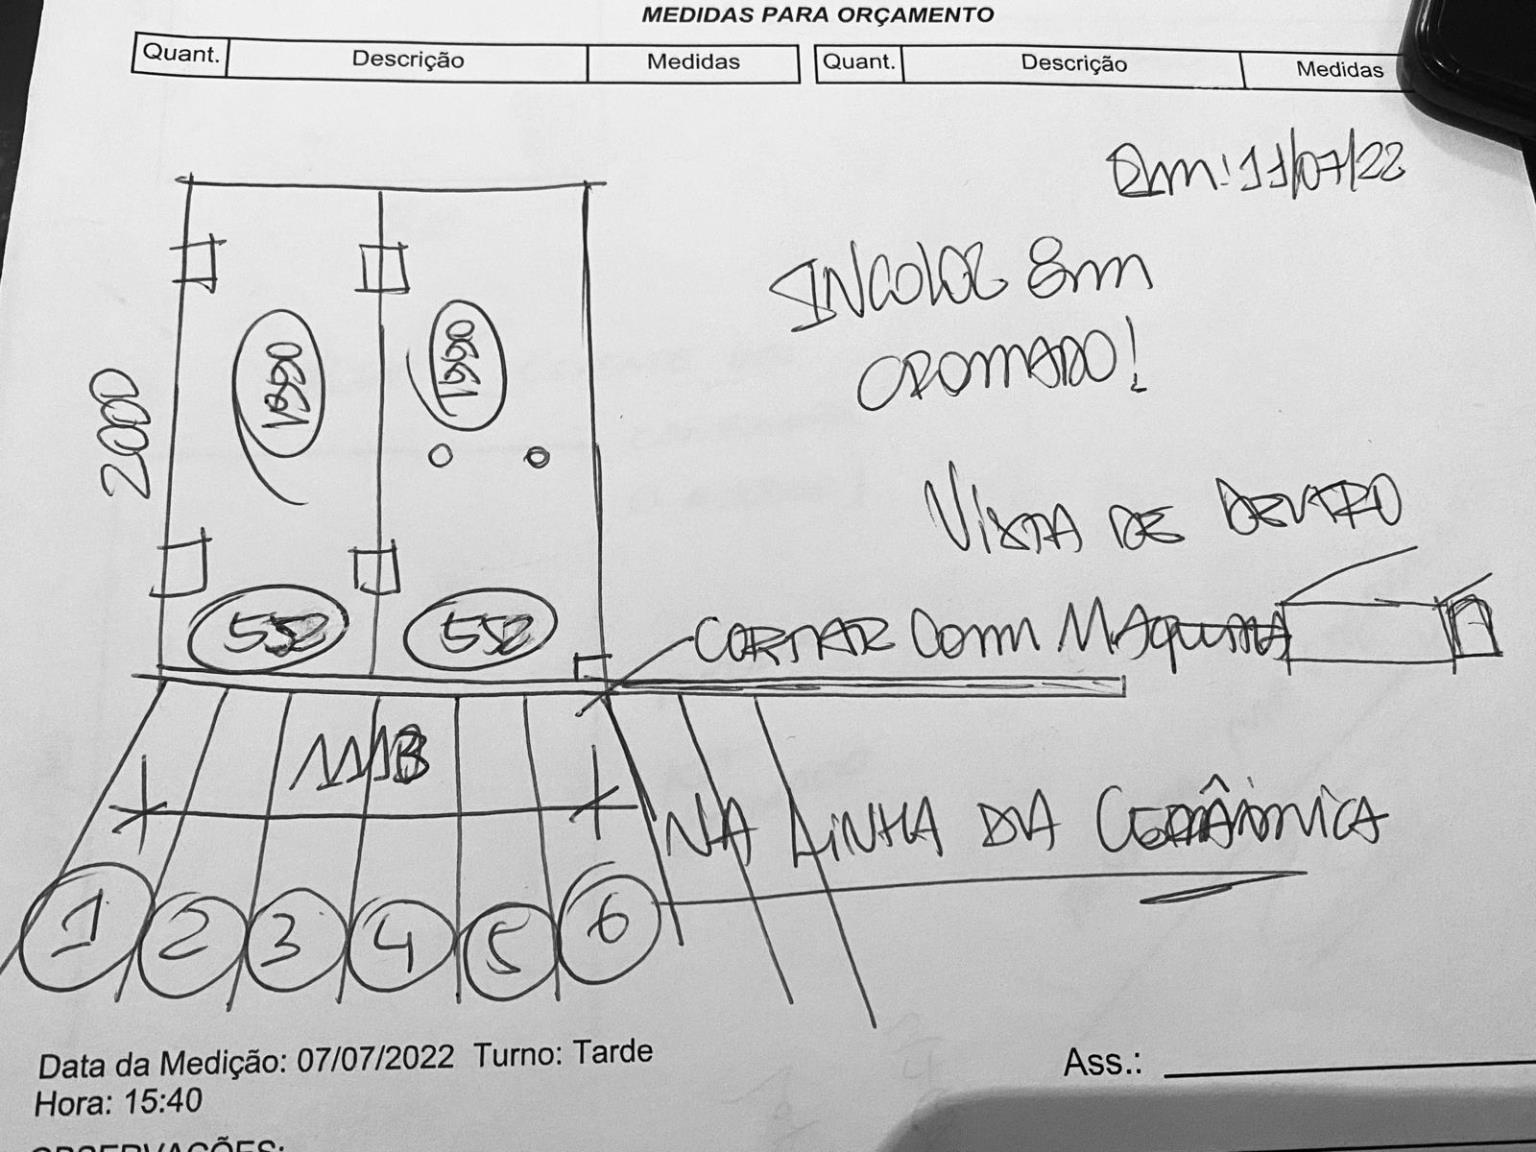 MEDIDAS PARA ORÇAMENTO
Quant. Descrição Medidas Quant. Descrição Medidas
11/07/22
INCOLOR 8mm
CROMADO!
2000
1990
VISTA DE DENTRO
CORTAR COM MAQUINA
1113
NA LINHA DA CERÂMICA
1 2 3 4 5 6
Data da Medição: 07/07/2022 Turno: Tarde
Hora: 15:40
Ass.:
OBSERVAÇÕES: